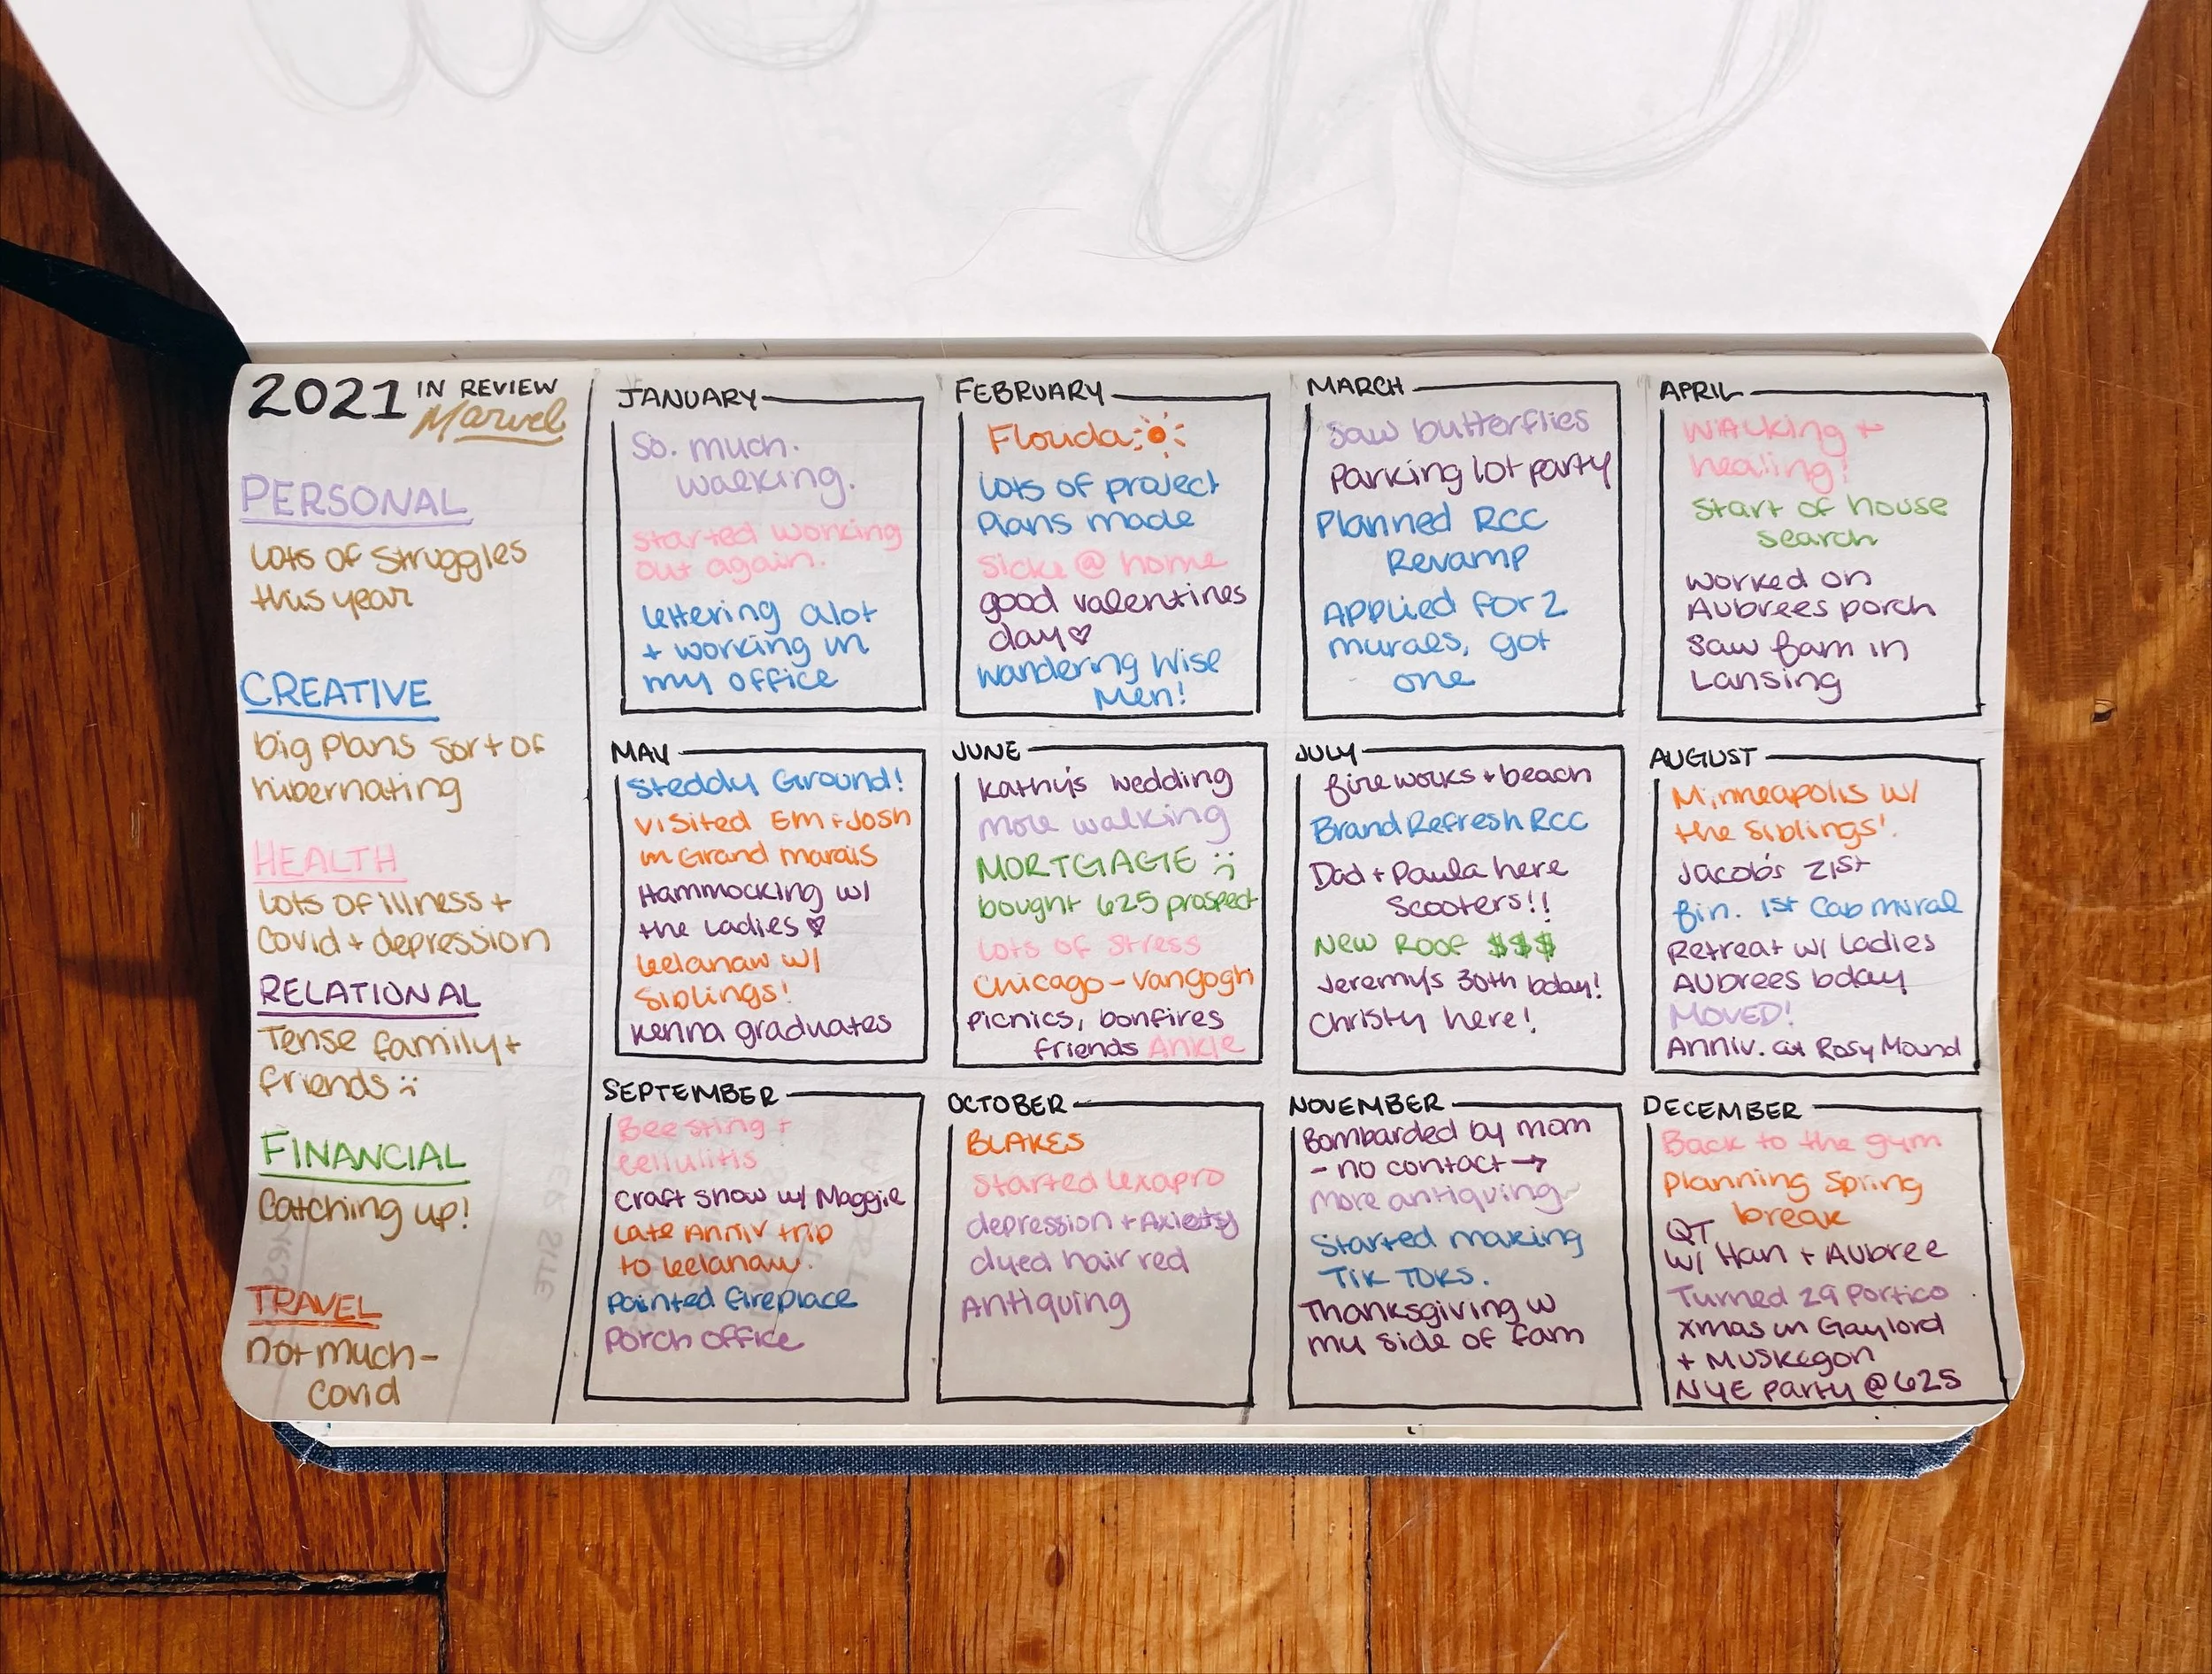 2021 IN REVIEW
Marvel
PERSONAL
Lots of struggles
this year
CREATIVE
big plans sort of
hibernating
HEALTH
Lots of illness +
Covid + depression
RELATIONAL
Tense family +
friends :(
FINANCIAL
Catching up!
TRAVEL
not much -
Covid
JANUARY
So. much.
walking.
started working
out again.
lettering alot
+ working in
my office
FEBRUARY
Florida
lots of project
plans made
Sick @ home
good valentines
day ♡
Wandering Wise
Men!
MARCH
Saw butterflies
Parking lot party
Planned RCC
Revamp
Applied for 2
murals, got
one
APRIL
Walking +
healing!
Start of house
search
worked on
Aubrees porch
Saw fam in
Lansing
MAY
Steddy Ground!
visited Em + Josh
in Grand Marais
Hammocking w/
the Ladies ♡
Leelanaw w/
Siblings!
Kenna graduates
JUNE
Kathy's wedding
more walking
MORTGAGE :)
bought 625 prospect
Lots of stress
Chicago - Vangogh
picnics, bonfires
friends Ankle
JULY
fireworks + beach
Brand Refresh RCC
Dad + Paula here
Scooters!!
New Roof $$$
Jeremy's 30th bday!
Christy here!
AUGUST
Minneapolis w/
the Siblings!
Jacob's 21st
fin. 1st Cab mural
Retreat w/ Ladies
Aubrees bday
MOVED!
Anniv. at Rosy Mound
SEPTEMBER
Bee sting +
Cellulitis
Craft show w/ Maggie
Late Anniv trip
to Leelanaw.
Painted fireplace
Porch office
OCTOBER
BLAKES
Started Lexapro
depression + Axiety
dyed hair red
Antiquing
NOVEMBER
Bombarded by mom
- no contact →
More antiquing
Started making
Tik Toks.
Thanksgiving w
my side of fam
DECEMBER
Back to the gym
Planning Spring
break
QT
w/ Han + Aubree
Turned 29 Portico
xmas in Gaylord
+ Muskegon
NYE Party @ 625